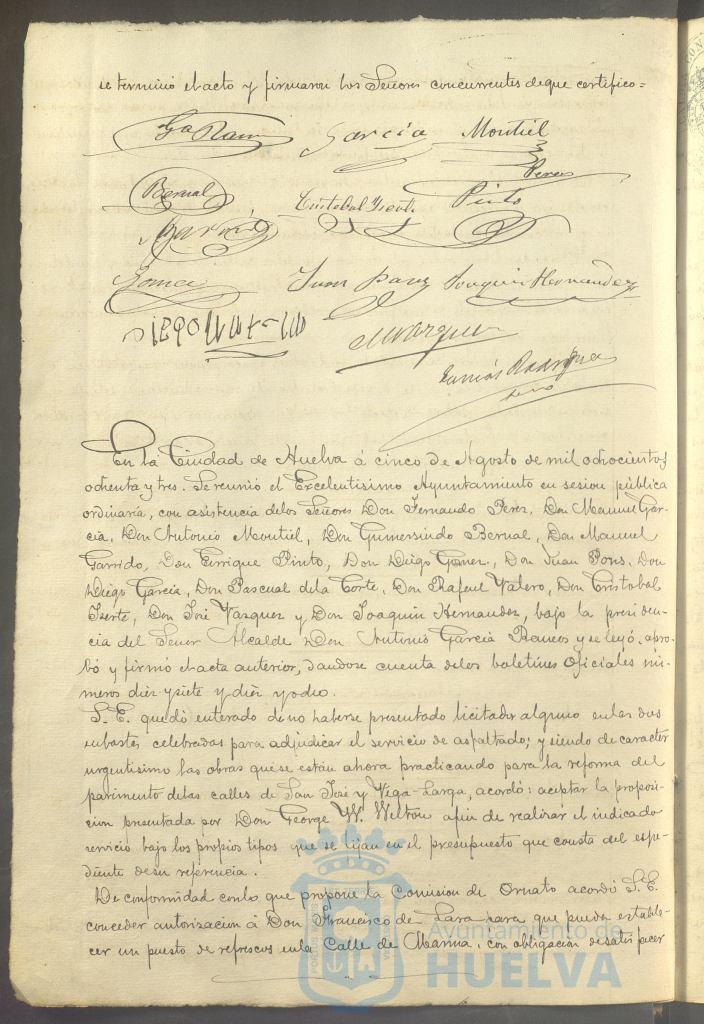 se terminó el acto y firmaron los Señores concurrentes de que certifico =
García Montiel
Perez
Bernal Cristobal Yserte Pinto
Garrido
Gomez Juan Pons Joaquin Hernandez
Vazquez
Tomás Rodriguez
Srio
En la Ciudad de Huelva á cinco de Agosto de mil ochocientos
ochenta y tres. Se reunió el Excelentisimo Ayuntamiento en sesion pública
ordinaria, con asistencia de los Señores Don Fernando Perez, Don Manuel Gar-
cia, Don Antonio Montiel, Don Gumersindo Bernal, Don Manuel
Garrido, Don Enrrique Pinto, Don Diego Gomez, Don Juan Pons, Don
Diego Garcia, Don Pascual dela Corte, Don Rafael Valero, Don Cristobal
Iserte, Don José Vazquez y Don Joaquin Hernandez, bajo la presiden-
cia del Señor Alcalde Don Antonio Garcia Ramos y se leyó, apro-
bó y firmó el acta anterior, dandose cuenta delos boletines oficiales nú-
meros diez y siete y diez y ocho.
S. E. quedó enterado de no haberse presentado licitador alguno en las dos
subastas celebradas para adjudicar el servicio de asfaltado; y siendo de caracter
urgentisimo las obras que se están ahora practicando para la reforma del
pavimento delas calles de San José y Vega-Larga, acordó: aceptar la proposi-
cion presentada por Don George W. Welton afin de realizar el indicado
servicio bajo los propios tipos que se fijan en el presupuesto que consta del espe-
diente de su referencia.
De conformidad con lo que propone la Comision de Ornato acordó S. E.
conceder autorizacion á Don Francisco de Lara para que pueda estable-
cer un puesto de refrescos en la Calle de Marina, con obligacion de satisfacer
Ayuntamiento de
HUELVA